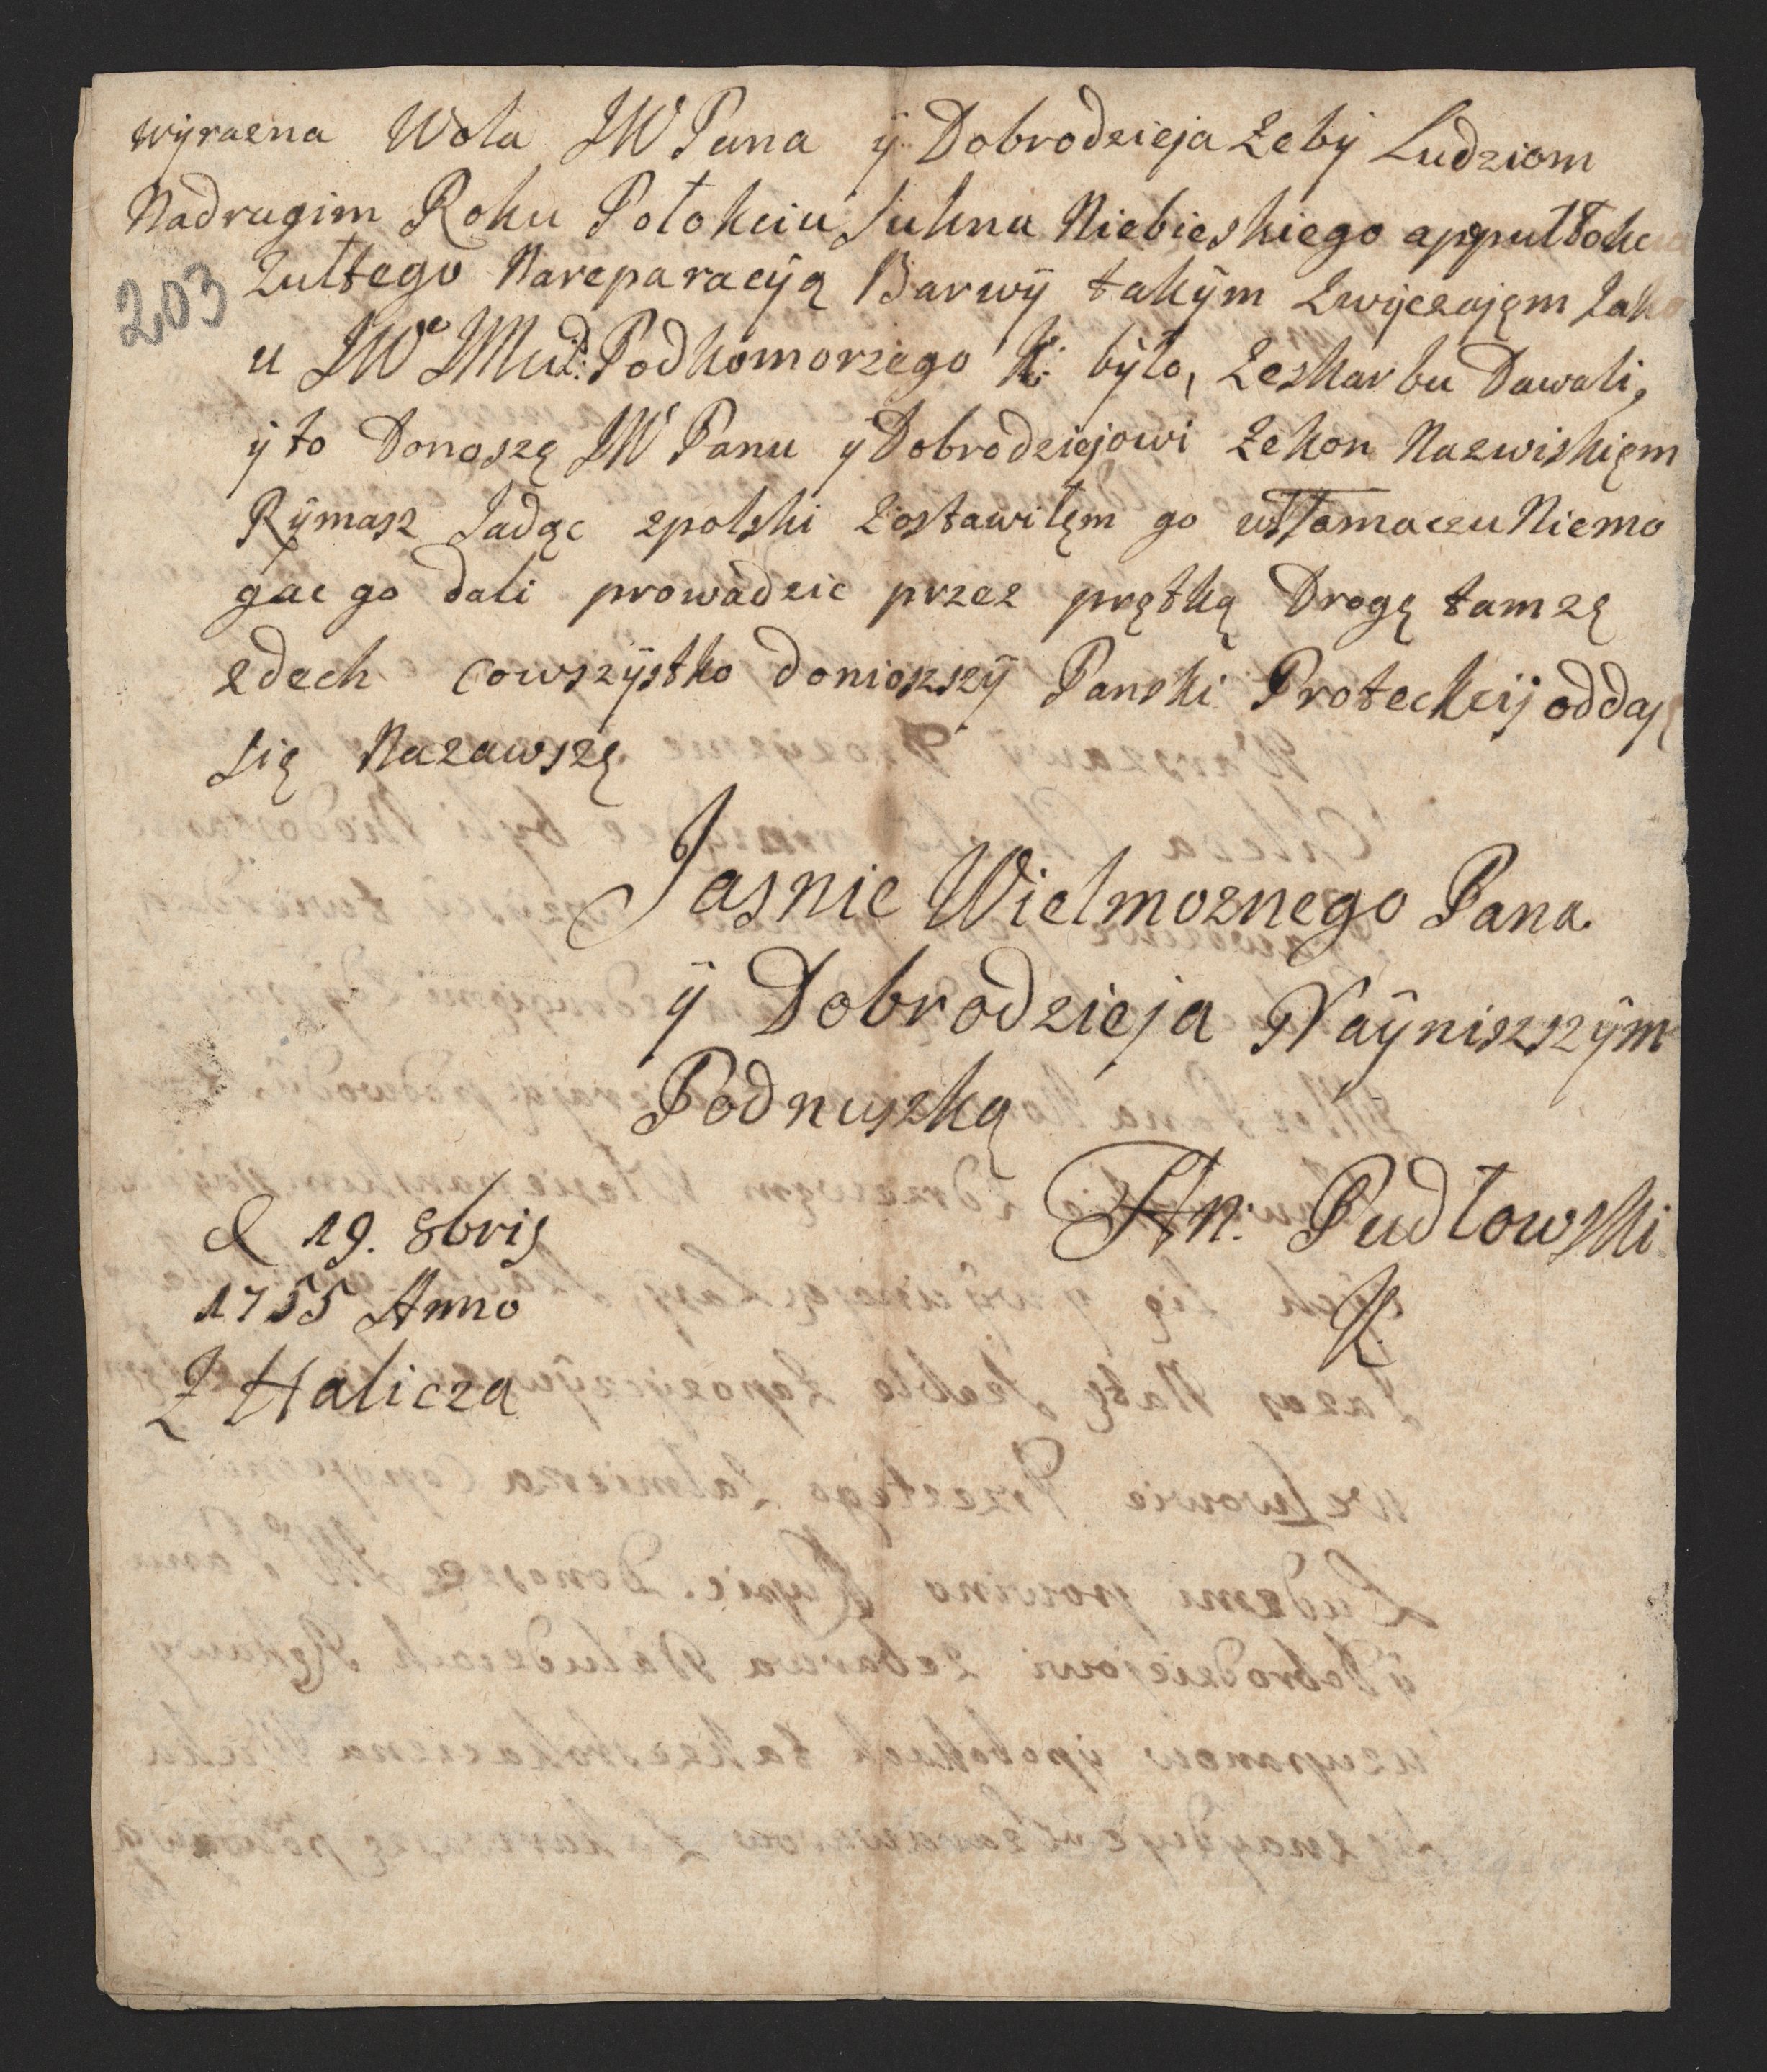 wyrazna Wola JW Pana ÿ Dobrodzieja Zebÿ Ludziom
Nadrugim Roku Potokciu Sukna Niebieskiego appułtokc
Zułtego Nareparacÿą Barwÿ takÿm Zwÿczajęm Jako
203
u JWo JMci: Podkomorzego K: bÿło, Zeskarbu Dawali,
ÿ to Donoszę JW Panu ÿ Dobrodziejowi Zekon Nazwiskięm
Rÿmasz Jadąc zpolski Zostawiłęm go wTłomaczu Niemo
gac go dali prowadzic przez prętką Drogę tamzę
zdech cowszÿstko doniozszÿ Panski Proteckcij oddaję
się Nazawszę
Jasnie Wielmoznego Pana
ÿ Dobrodzieja Naÿniszszÿm
Podnuszką
An: Pudłowski
K
d 19. 8bris
1755 Anno
Z Halicza